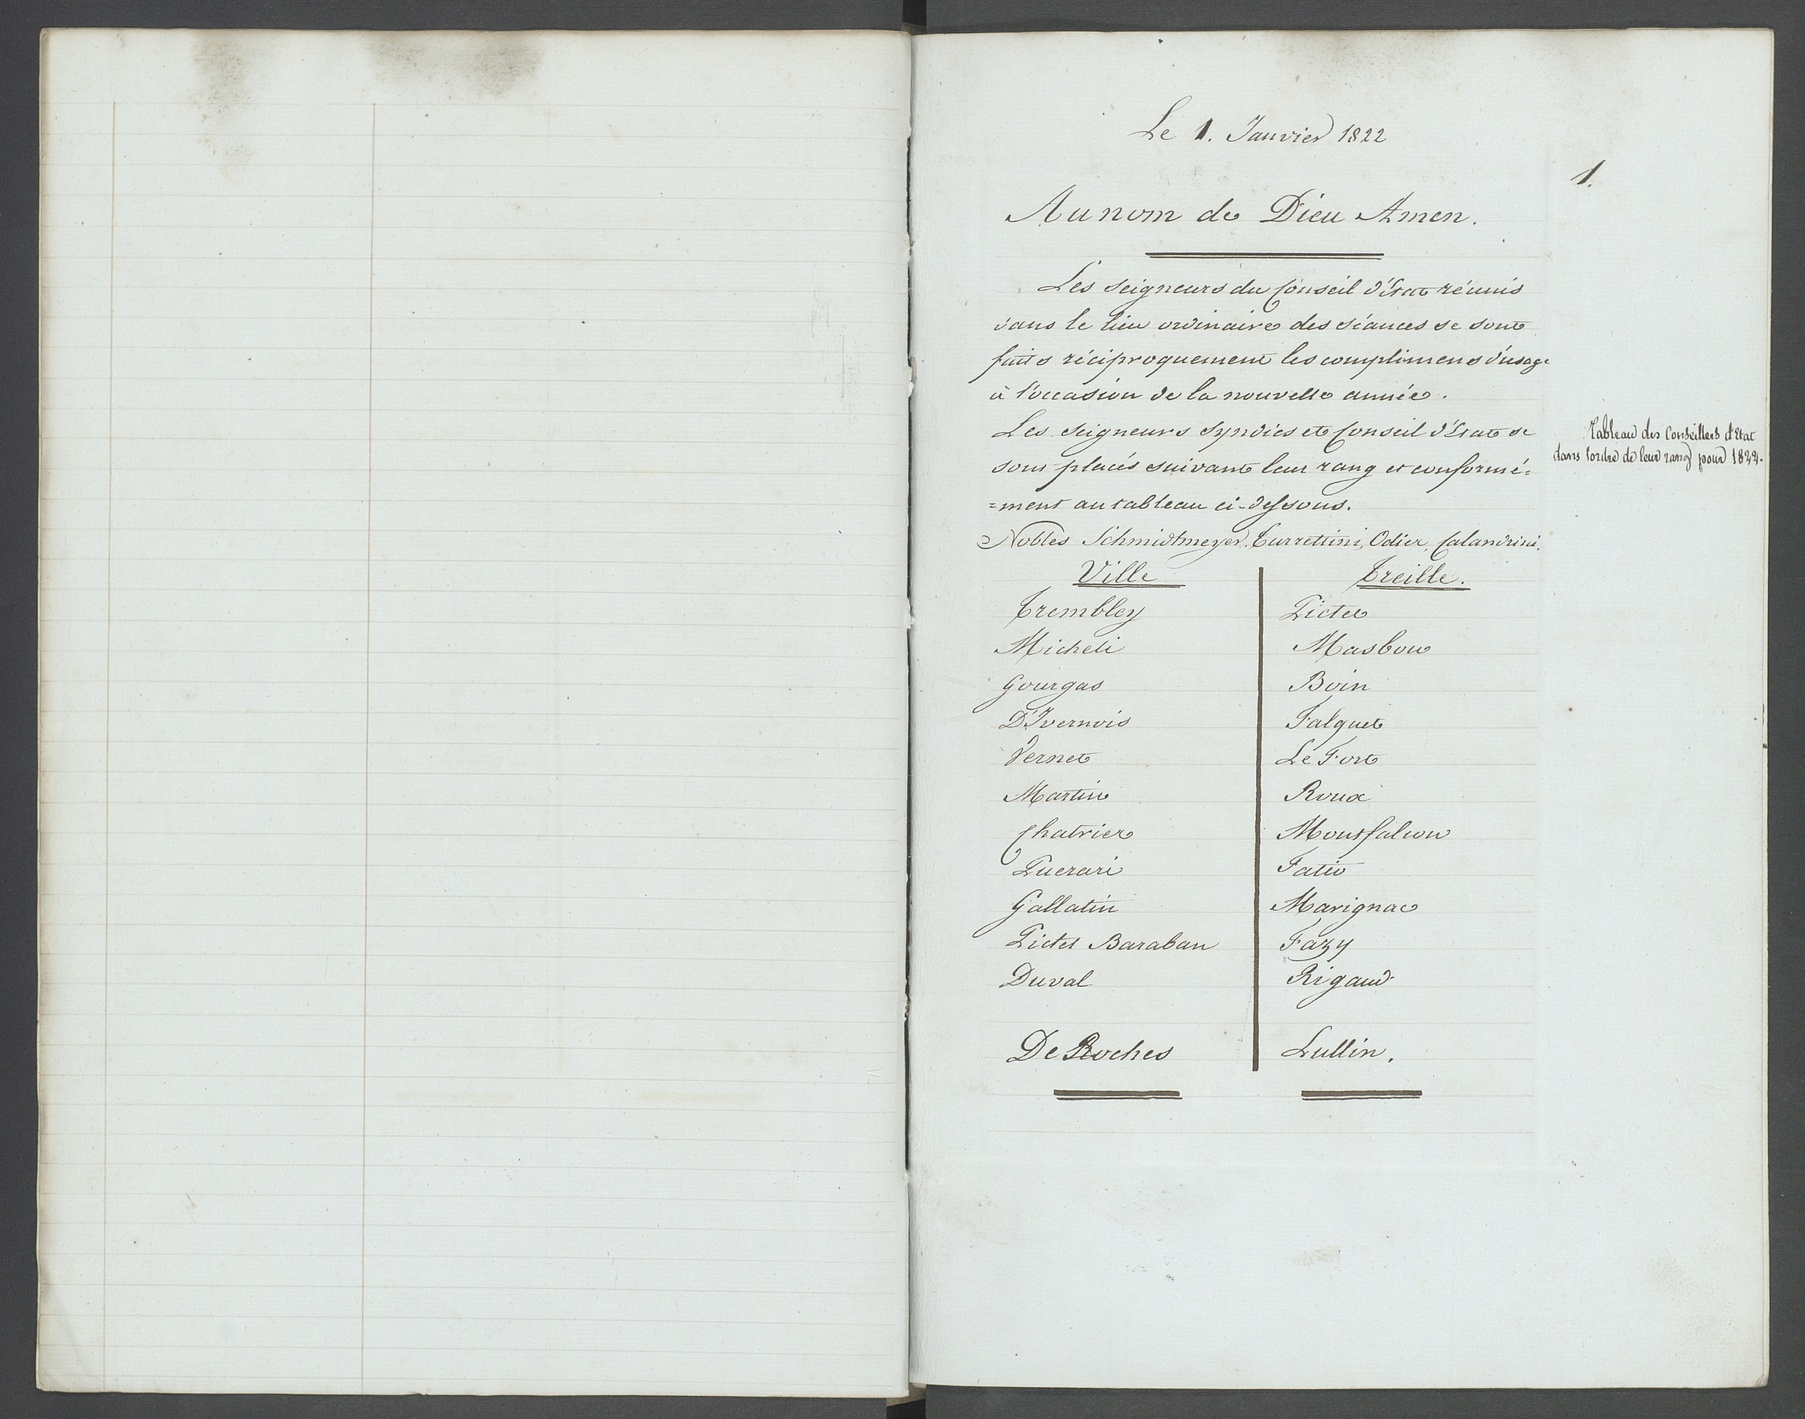 Le 1. Janvier 1822
1.
Au nom de Dieu Amen.
Les Seigneurs du Conseil d'Etat réunis
dans le lieu ordinaire des séances se sont
faits réciproquement les complimens d'usage
à l'occasion de la nouvelle année.
Les Seigneurs Syndics et Conseil d'Etat se
sont placés suivant leur rang et conformé=
=ment au tableau ci-dessous.
Tableau des Conseillers d'Etat
dans l'ordre de leur rang pour 1822.
Nobles Schmidtmeyer, Turrettini, Odier, Calandrini.
Ville Treille.
Trembley Pictet
Micheli Masbou
Gourgas Boin
D'Ivernois Falquet
Vernet Le Fort
Martin Roux
Chatrier Montfalcon
Puerari Fatio
Gallatin Marignac
Pictet Baraban Fazy
Duval Rigaud
De Roches Lullin.